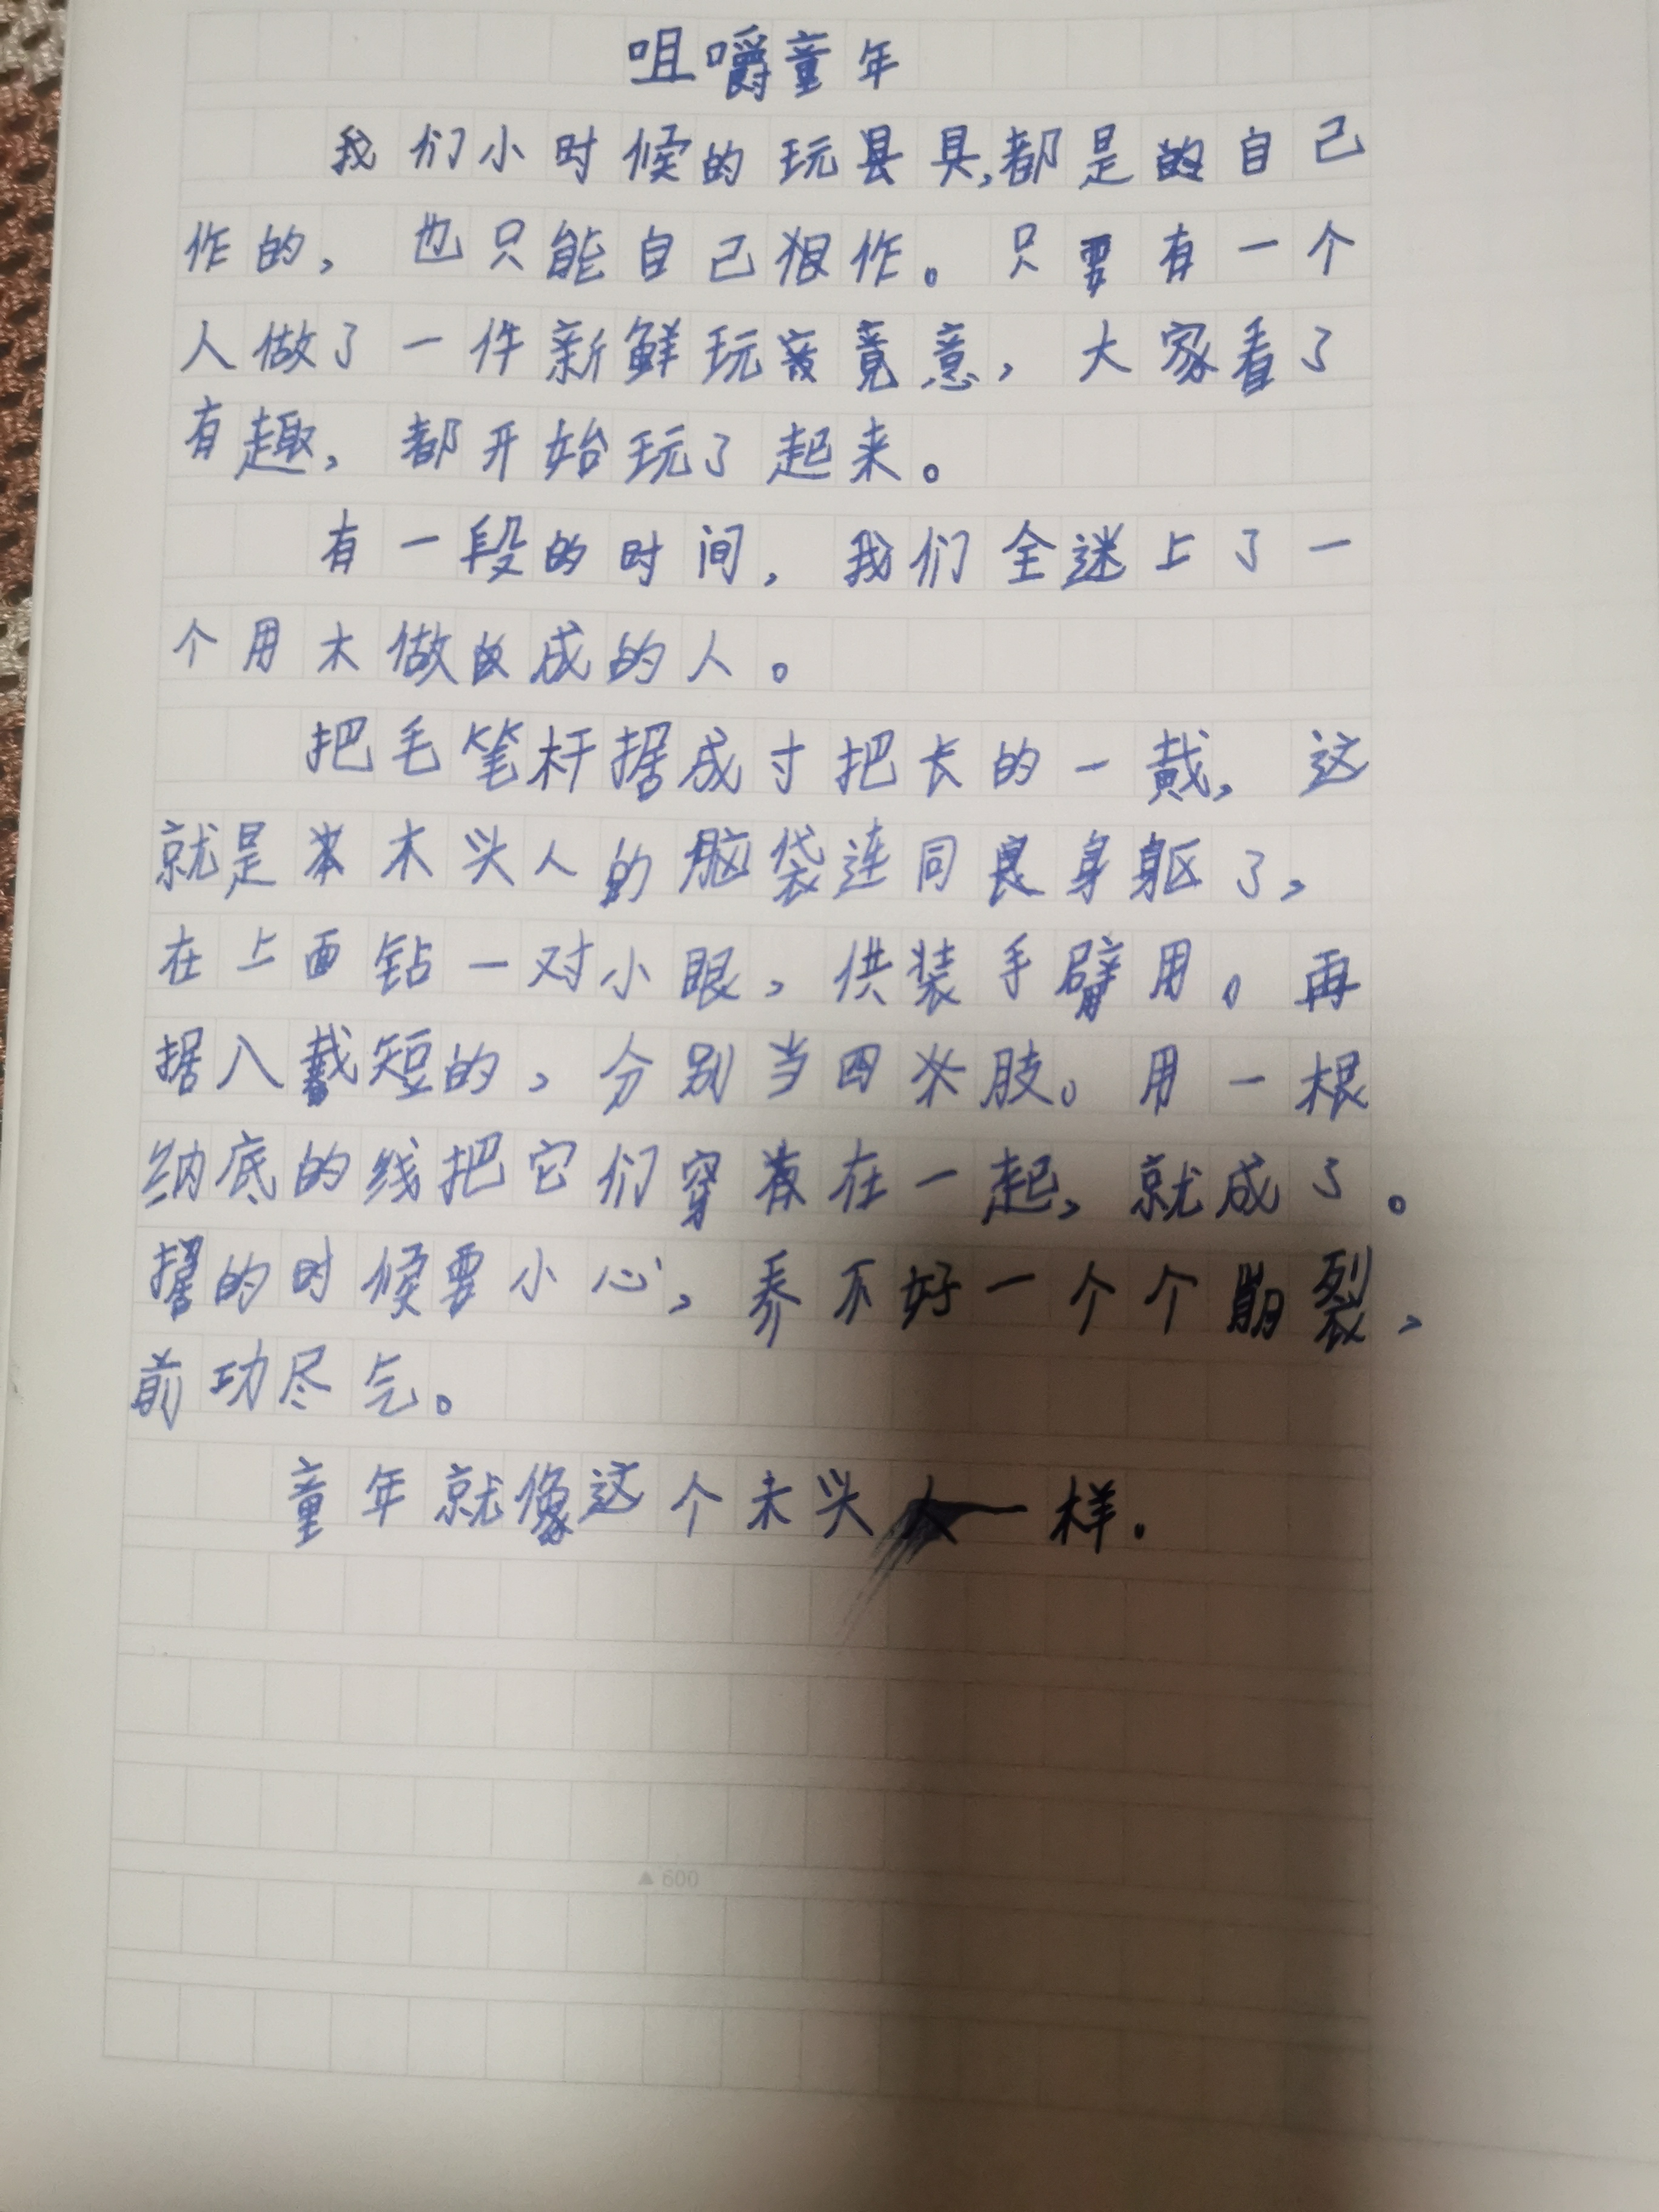 咀嚼童年
我们小时候的玩具,都是自己
作的，也只能自己作。只要有一个
人做了一件新鲜玩竟意，大家看了
有趣，都开始玩了起来。
有一段的时间，我们全迷上了一
个用木做成的人。
把毛笔杆据成寸把长的一戴，这
就是木头人的脑袋连同身躯了，
在上面钻一对小眼，供装手臂用。再
据八截短的，分别当四肢。用一根
纳底的线把它们穿在一起，就成了。
据的时候要小心，弄不好一个个崩裂，
前功尽乞。
童年就像这个木头人一样.
▲600